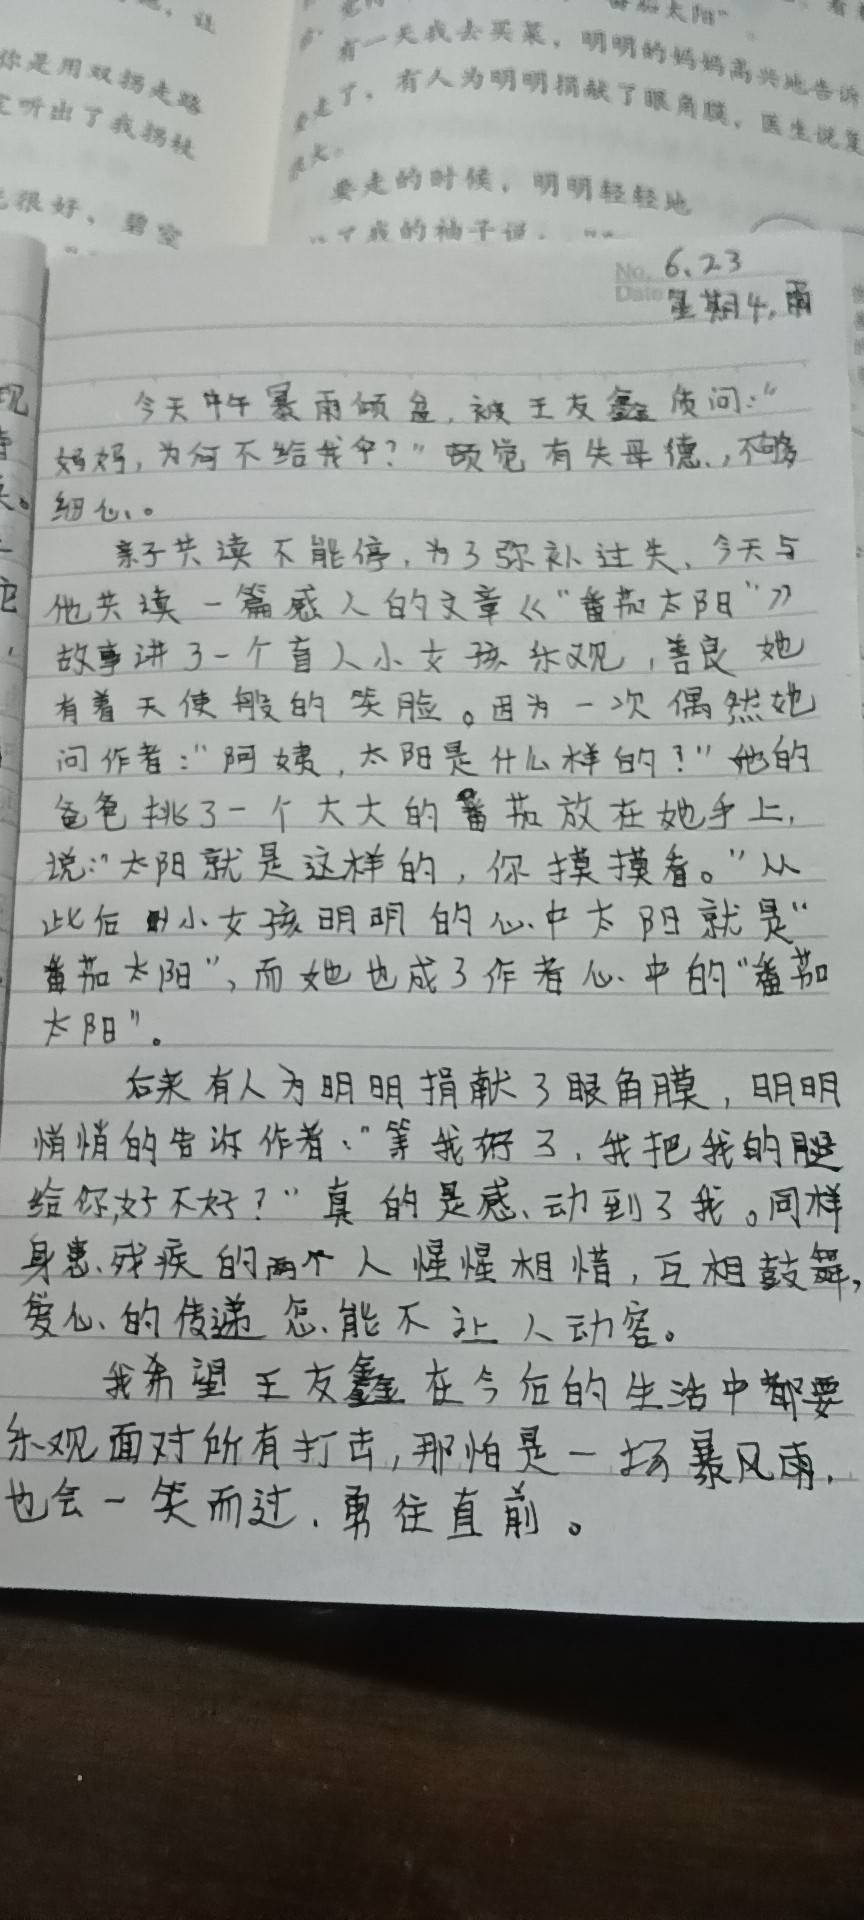 你是用双拐走路
听出了我拐杖
很好，碧空
番茄太阳”
有一天我去买菜，明明的妈妈高兴地告诉
走了，有人为明明捐献了眼角膜，医生说复
要走的时候，明明轻轻地
了我的袖子说
No. 6.23
Date 星期4，雨
今天中午暴雨倾盆，被王友鑫质问：“
妈妈，为何不给我伞？”顿觉有失母德，不够
细心。
亲子共读不能停，为了弥补过失，今天与
他共读一篇感人的文章《“番茄太阳”》
故事讲了一个盲人小女孩乐观，善良她
有着天使般的笑脸。因为一次偶然她
问作者：“阿姨，太阳是什么样的？”她的
爸爸挑了一个大大的番茄放在她手上，
说：“太阳就是这样的，你摸摸看。”从
此后小女孩明明的心中太阳就是“
番茄太阳”，而她也成了作者心中的“番茄
太阳”。
后来有人为明明捐献了眼角膜，明明
悄悄的告诉作者：“等我好了，我把我的腿
给你，好不好？”真的是感动到了我。同样
身患残疾的两个人惺惺相惜，互相鼓舞，
爱心的传递怎能不让人动容。
我希望王友鑫在今后的生活中都要
乐观面对所有打击，那怕是一场暴风雨，
也会一笑而过，勇往直前。